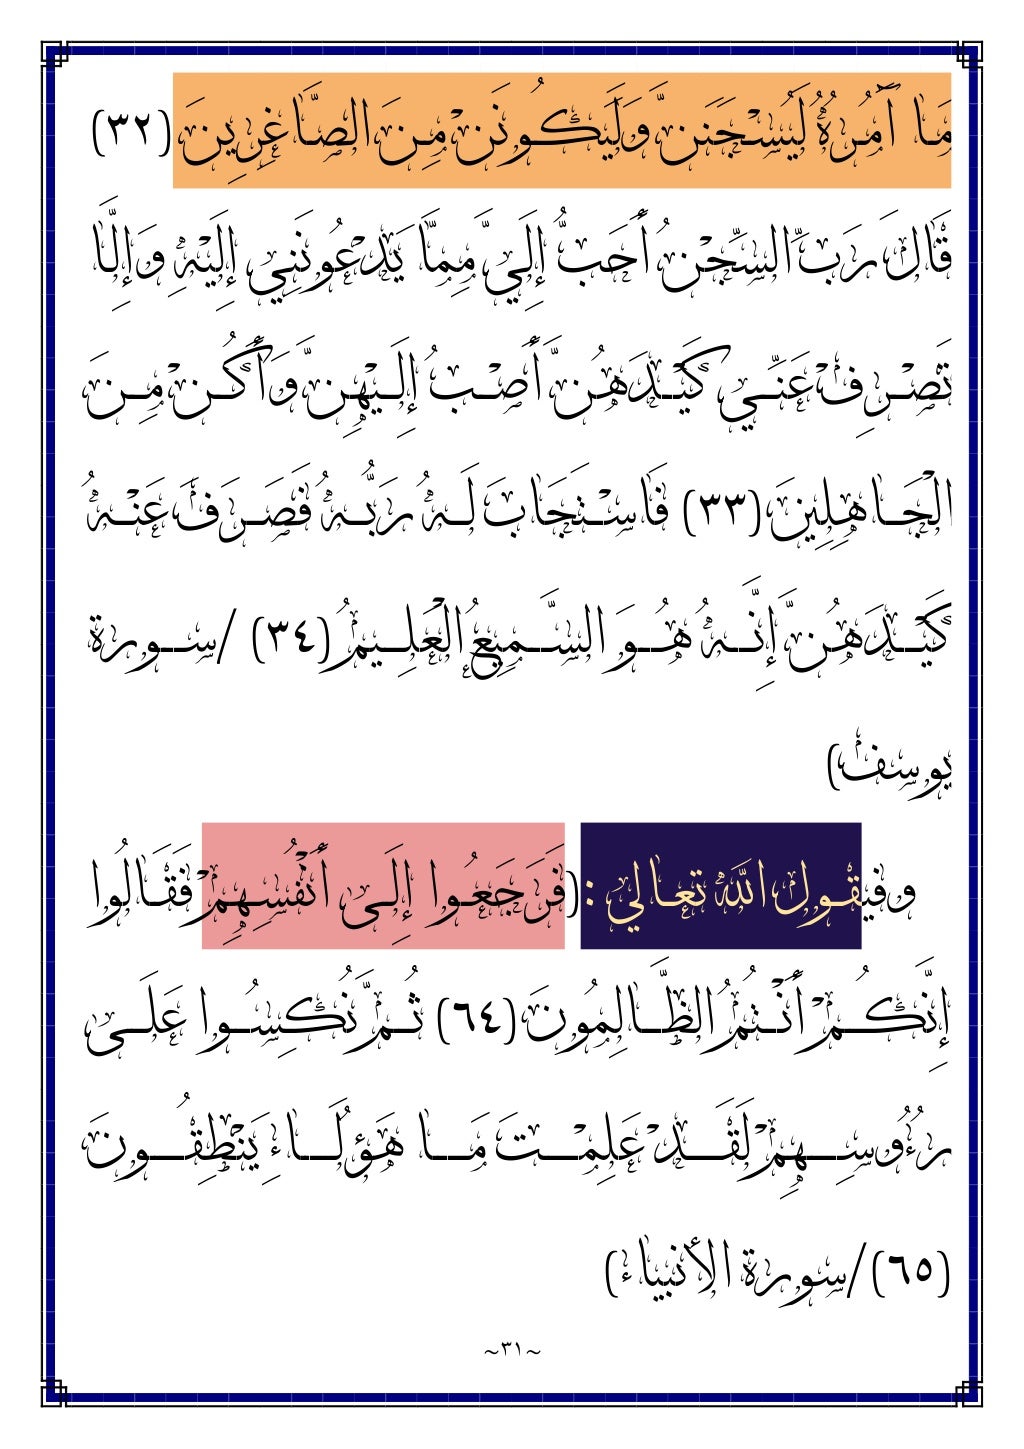 مَا آمُرُهُ لَيُسْجَنَنَّ وَلَيَكُونَنْ مِنَ الصَّاغِرِينَ (٣٢)
قَالَ رَبِّ السِّجْنُ أَحَبُّ إِلَيَّ مِمَّا يَدْعُونَنِي إِلَيْهِ وَإِلَّا
تَصْرِفْ عَنِّي كَيْدَهُنَّ أَصْبُ إِلَيْهِنَّ وَأَكُنْ مِنَ
الْجَاهِلِينَ (٣٣) فَاسْتَجَابَ لَهُ رَبُّهُ فَصَرَفَ عَنْهُ
كَيْدَهُنَّ إِنَّهُ هُوَ السَّمِيعُ الْعَلِيمُ (٣٤) /سورة
يوسف)
وفيقول الله تعالي :(فَرَجَعُوا إِلَى أَنْفُسِهِمْ فَقَالُوا
إِنَّكُمْ أَنْتُمُ الظَّالِمُونَ (٦٤) ثُمَّ نُكِسُوا عَلَى
رُءُوسِهِمْ لَقَدْ عَلِمْتَ مَا هَؤُلَاءِ يَنْطِقُونَ
(٦٥)/سورة الأنبياء)
~٣١~